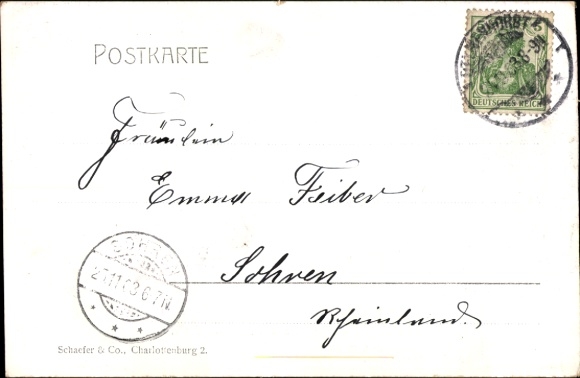 POSTKARTE
DEUTSCHES REICH
Fräulein
Emma Feiber
Sohren
Rheinland.
Schaefer & Co., Charlottenburg 2.